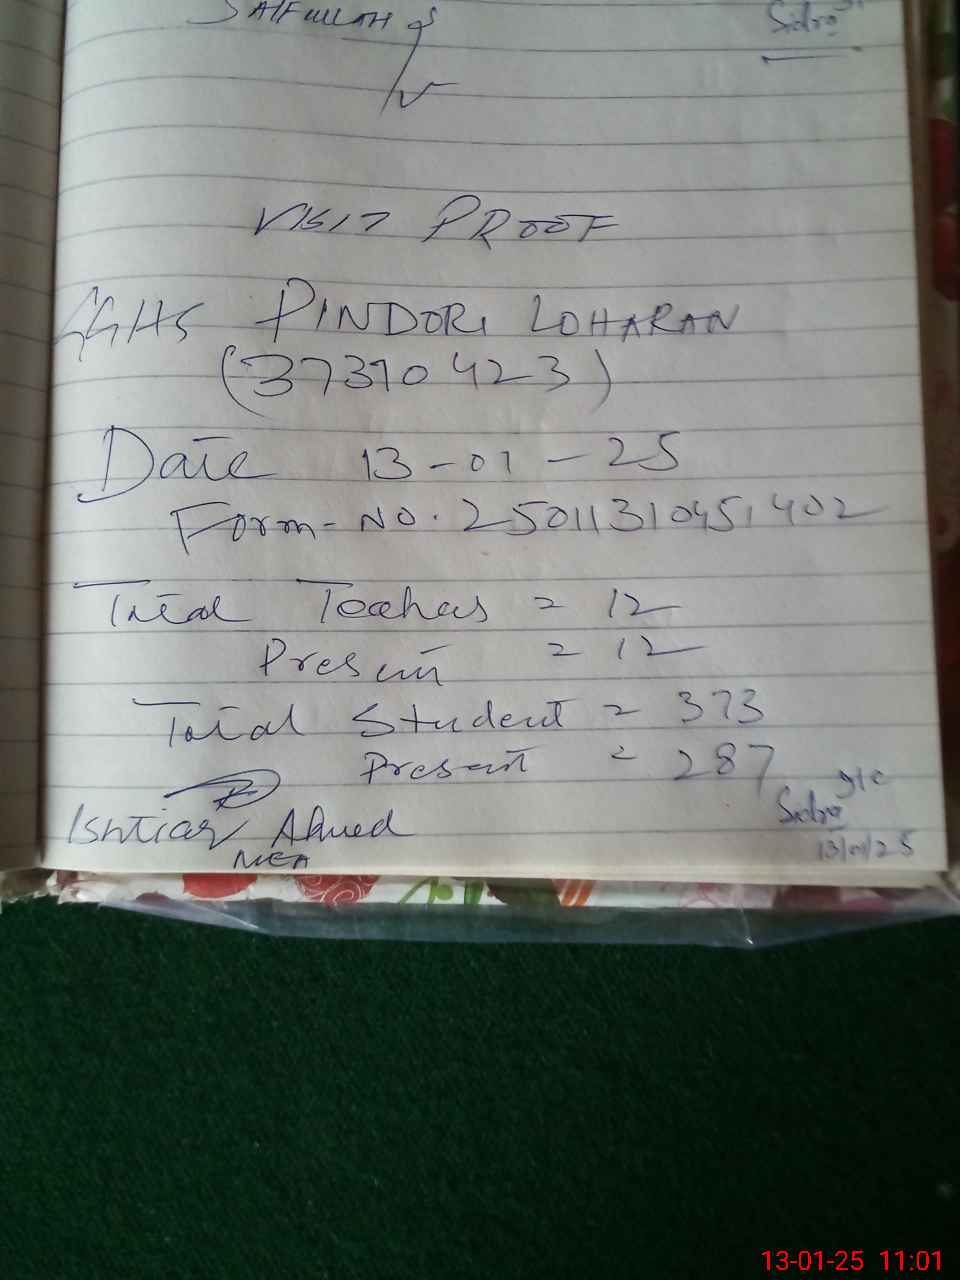 SAIFULLAH
Sidra
VISIT PROOF
GGHS PINDORI LOHARAN
(37310423)
Date 13-01-25
Form-No. 25011310451402
Total Teachers = 12
Present = 12
Total Student = 373
Present = 287
Ishtiaq Ahmed
MEA
Sidra
13/01/25
13-01-25 11:01